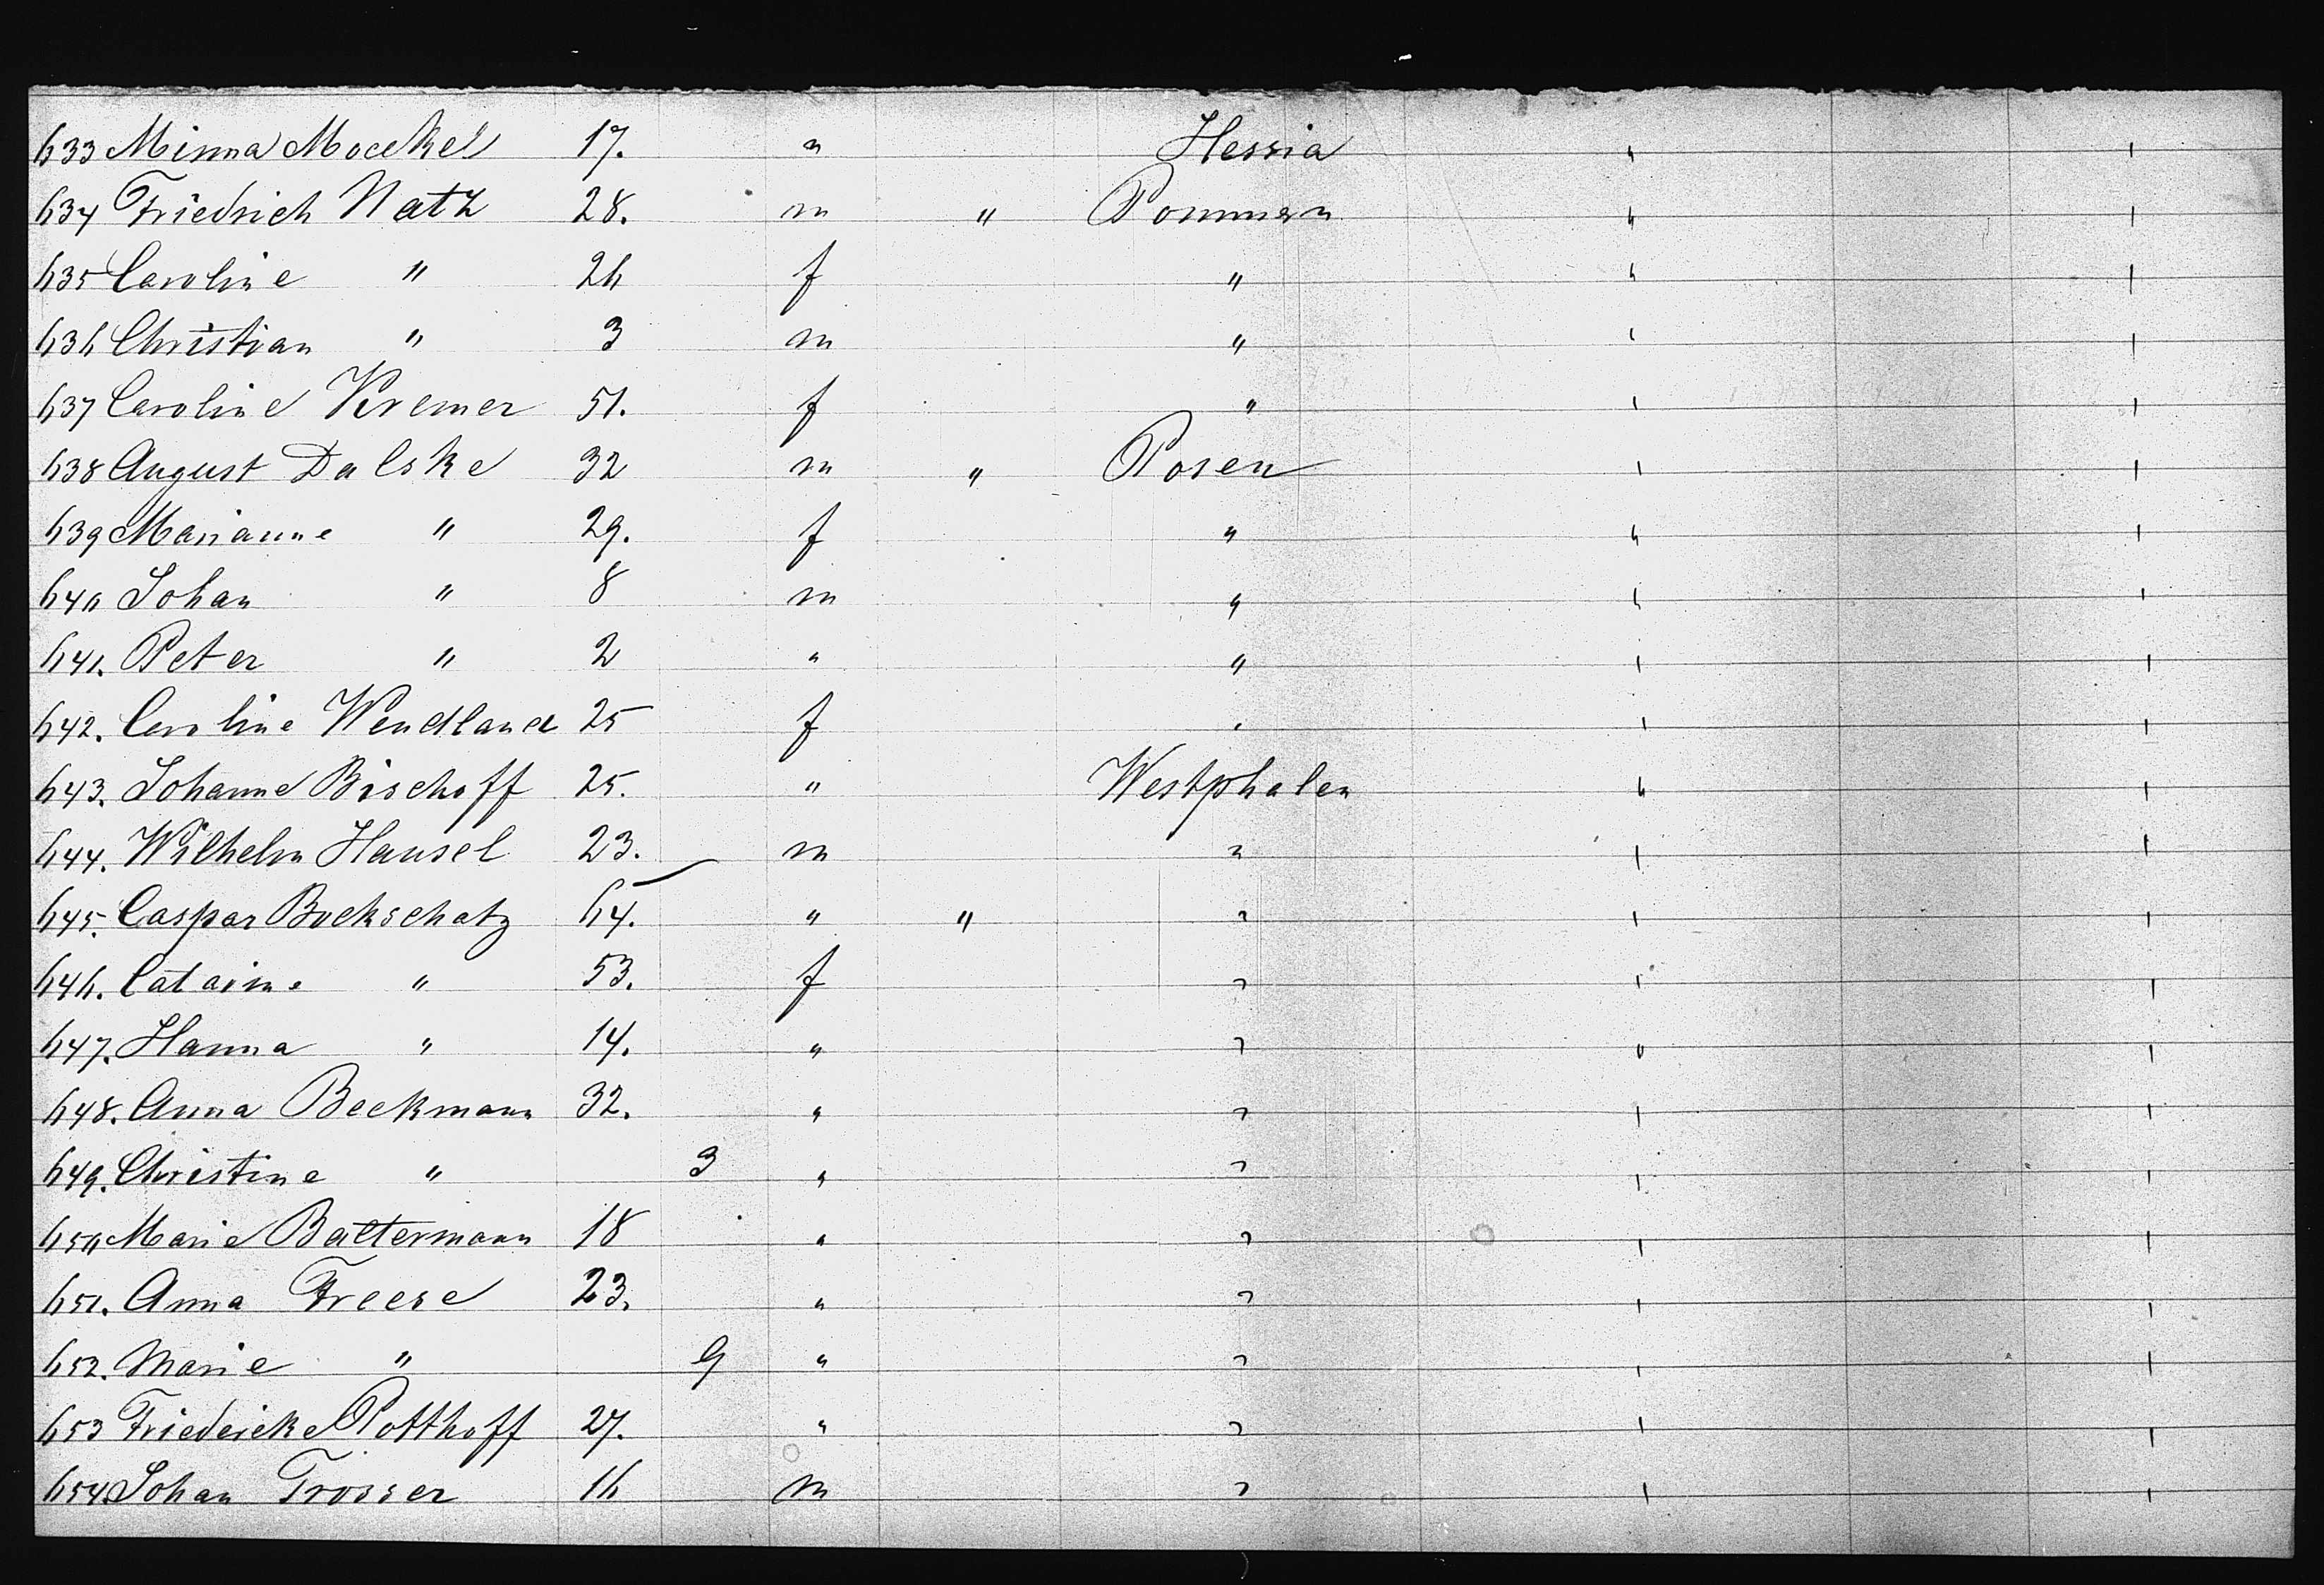 633 Minna Moeckel 17. " Hessia " "
634 Friedrich Natz 28. m " Pommern " "
635 Caroline " 26 f " " "
636 Christian " 3 m " " "
637 Caroline Kremer 51. f " " "
638 August Dalske 32 m " Posen " "
639 Marianne " 29. f " " "
640 Johan " 8 m " " "
641. Peter " 2 " " " "
642. Caroline Wendland 25 f " " "
643. Johanne Bischoff 25. " Westphalen " "
644. Wilhelm Hansel 23. m " " "
645. Caspar Bockschatz 64. " " " " "
646. Catarine " 53. f " " "
647. Hanna " 14. " " " "
648. Anna Beckmann 32. " " " "
649. Christine " 3 " " " "
650 Marie Baltermann 18 " " " "
651. Anna Freese 23. " " " "
652. Marie " 9 " " " "
653 Friedericke Potthoff 27. " " " "
654 Johan Trosser 16 m " " "